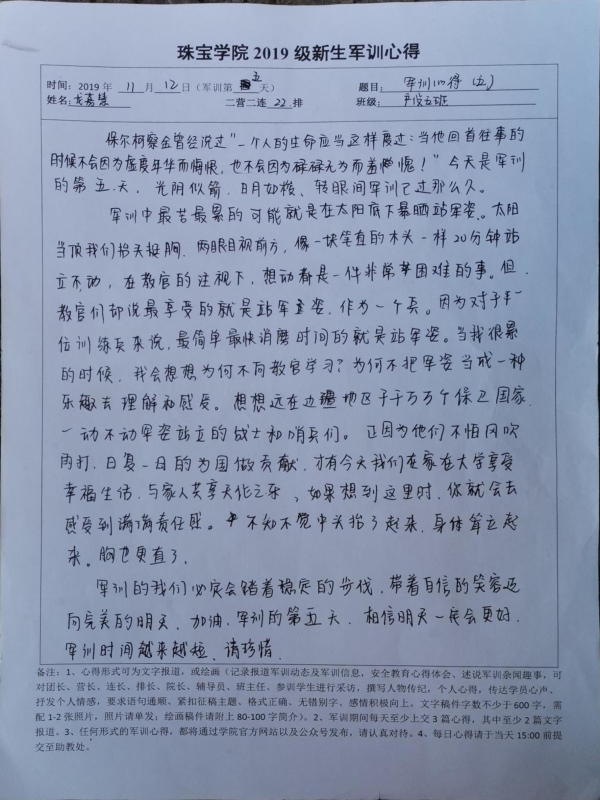 珠宝学院 2019 级新生军训心得
时间：2019 年 11 月 12 日（军训第 五 天） 题目：军训心得（五）
姓名： 二营二连 22 排 班级：
保尔柯察金曾经说过"一个人的生命应当这样度过：当他回首往事的
时候不会因为虚度年华而悔恨，也不会因为碌碌无为而羞愧！"今天是军训
的第五天，光阴似箭，日月如梭、转眼间军训已过那么久。
军训中最苦最累的可能就是在太阳底下暴晒站军姿。太阳
当顶我们抬头挺胸，两眼目视前方，像一块笔直的木头一样20分钟站
立不动，在教官的注视下，想动都是一件非常困难的事。但
教官们却说最享受的就是站军姿，作为一个兵。因为对于
位训练兵来说，最简单最快消磨时间的就是站军姿。当我很累
的时候，我会想想为何不向教官学习？为何不把军姿当成一种
乐趣去理解和感受。想想远在边疆地区千千万万个保卫国家
一动不动军姿站立的战士和哨兵们。正因为他们不怕风吹
雨打，日复一日的为国做贡献，才有今天我们在家在大学享受
幸福生活，与家人共享天伦之乐，如果想到这里时，你就会去
感受到满满责任感。不知不觉中头抬了起来，身体耸立起
来。胸也更直了。
军训的我们必定会踏着稳定的步伐，带着自信的笑容迈
向完美的明天，加油，军训的第五天，相信明天一定会更好，
军训时间越来越短、请珍惜。
备注：1、心得形式可为文字报道，或绘画（记录报道军训动态及军训信息，安全教育心得体会、述说军训杂闻趣事，可
对团长、营长、连长、排长、院长、辅导员、班主任、参训学生进行采访，撰写人物传纪，个人心得，传达学员心声、
抒发个人情感，要求语句通顺、紧扣征稿主题、格式正确、无错别字、感情积极向上。文字稿件字数不少于 600 字，需
配 1-2 张照片，照片请单发；绘画稿件请附上 80-100 字简介）。2、军训期间每天至少上交 3 篇心得，其中至少 2 篇文字
报道。3、任何形式的军训心得，都将通过学院官方网站以及公众号发布，请认真对待。4、每日心得请于当天 15:00 前提
交至助教处。